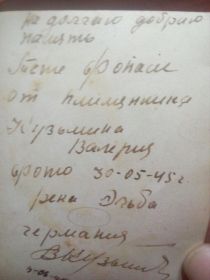 на долгую добрую
память
Тёте
от племянника
Кузьмина
Валерия
фото 30-05-45 г.
река Эльба
германия
ВКузьмин